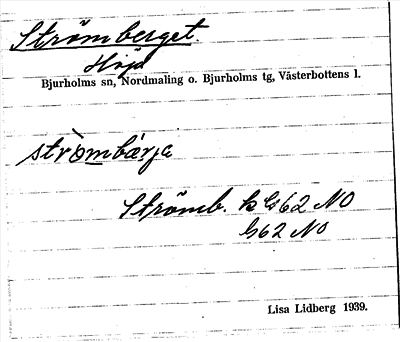 Strömberget.
Höjd
Bjurholms sn, Nordmaling o. Bjurholms tg, Västerbottens l.
strömbärja
Strömb. k G62 NO
G62 NO
Lisa Lidberg 1939.